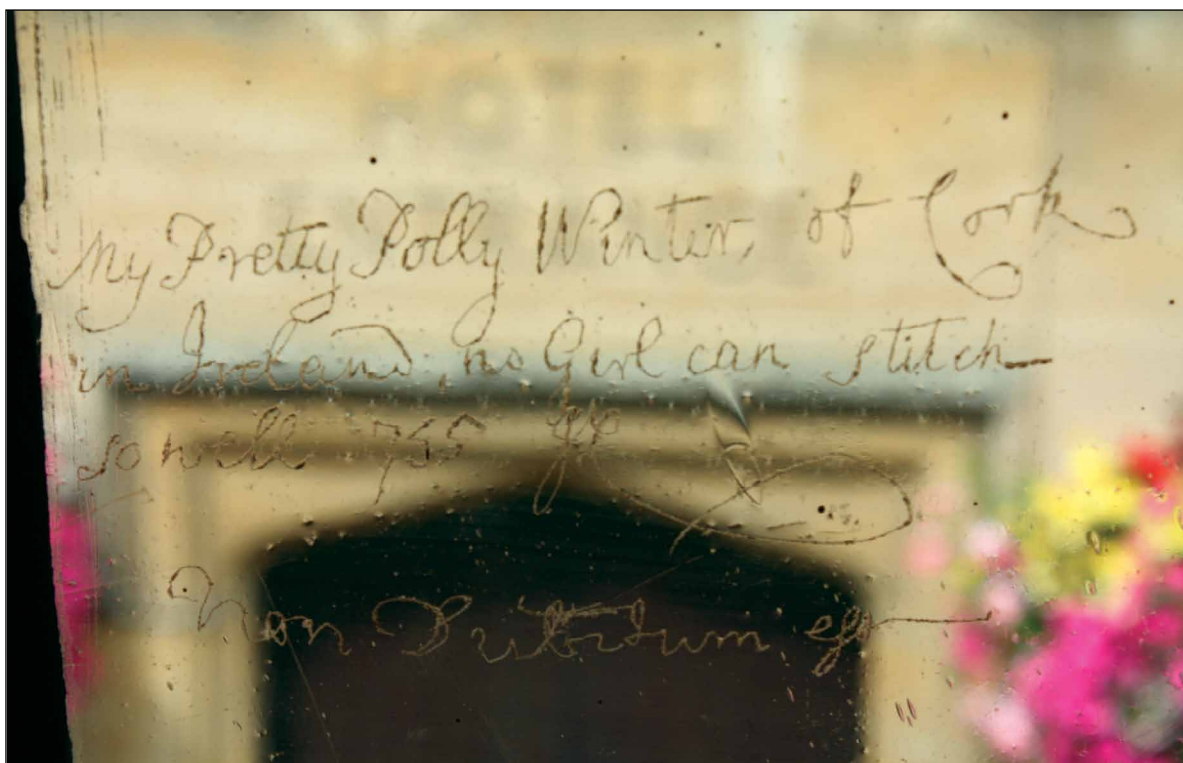 HOTEL
My Pretty Polly Winter, of Cork
in Ireland, no Girl can stitch
so well 1755
Non est